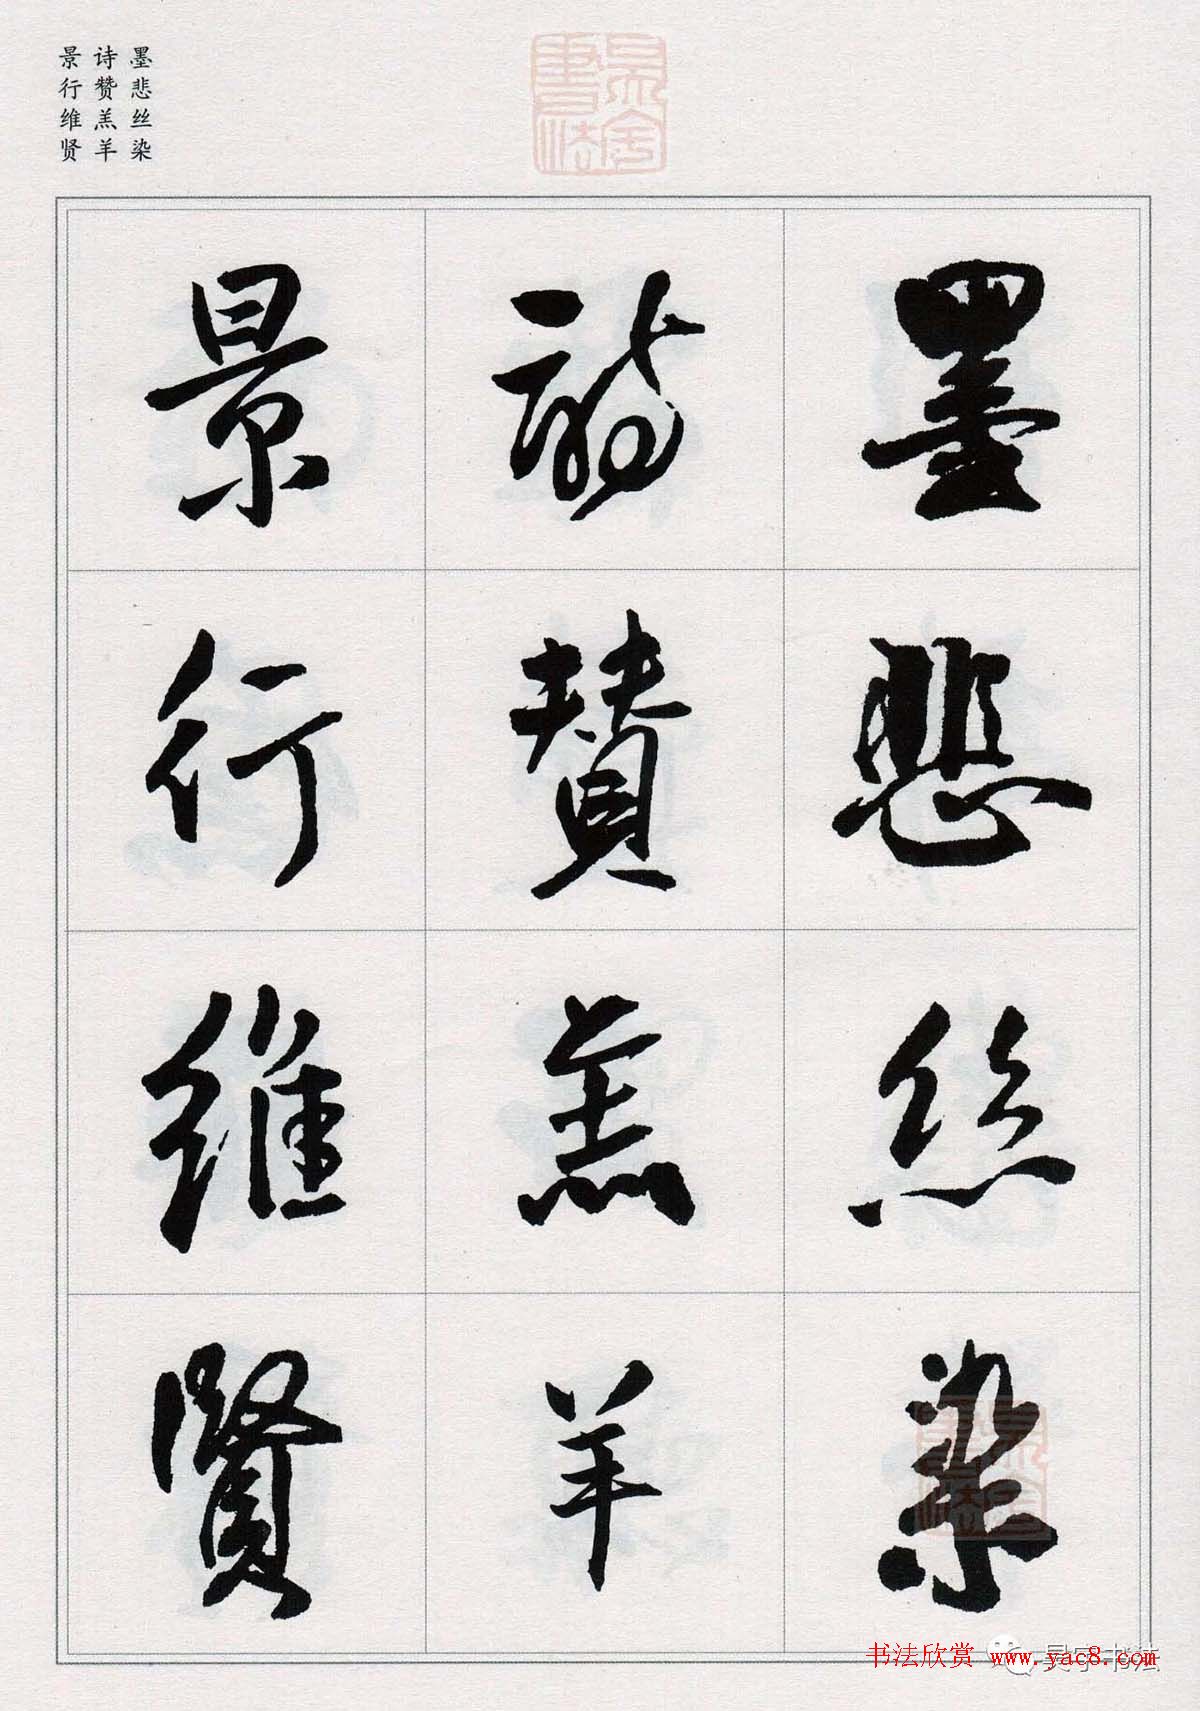 墨悲丝染
诗赞羔羊
景行维贤
墨悲丝染
詩贊羔羊
景行維賢
书法欣赏 www.yac8.com
昊宇书法